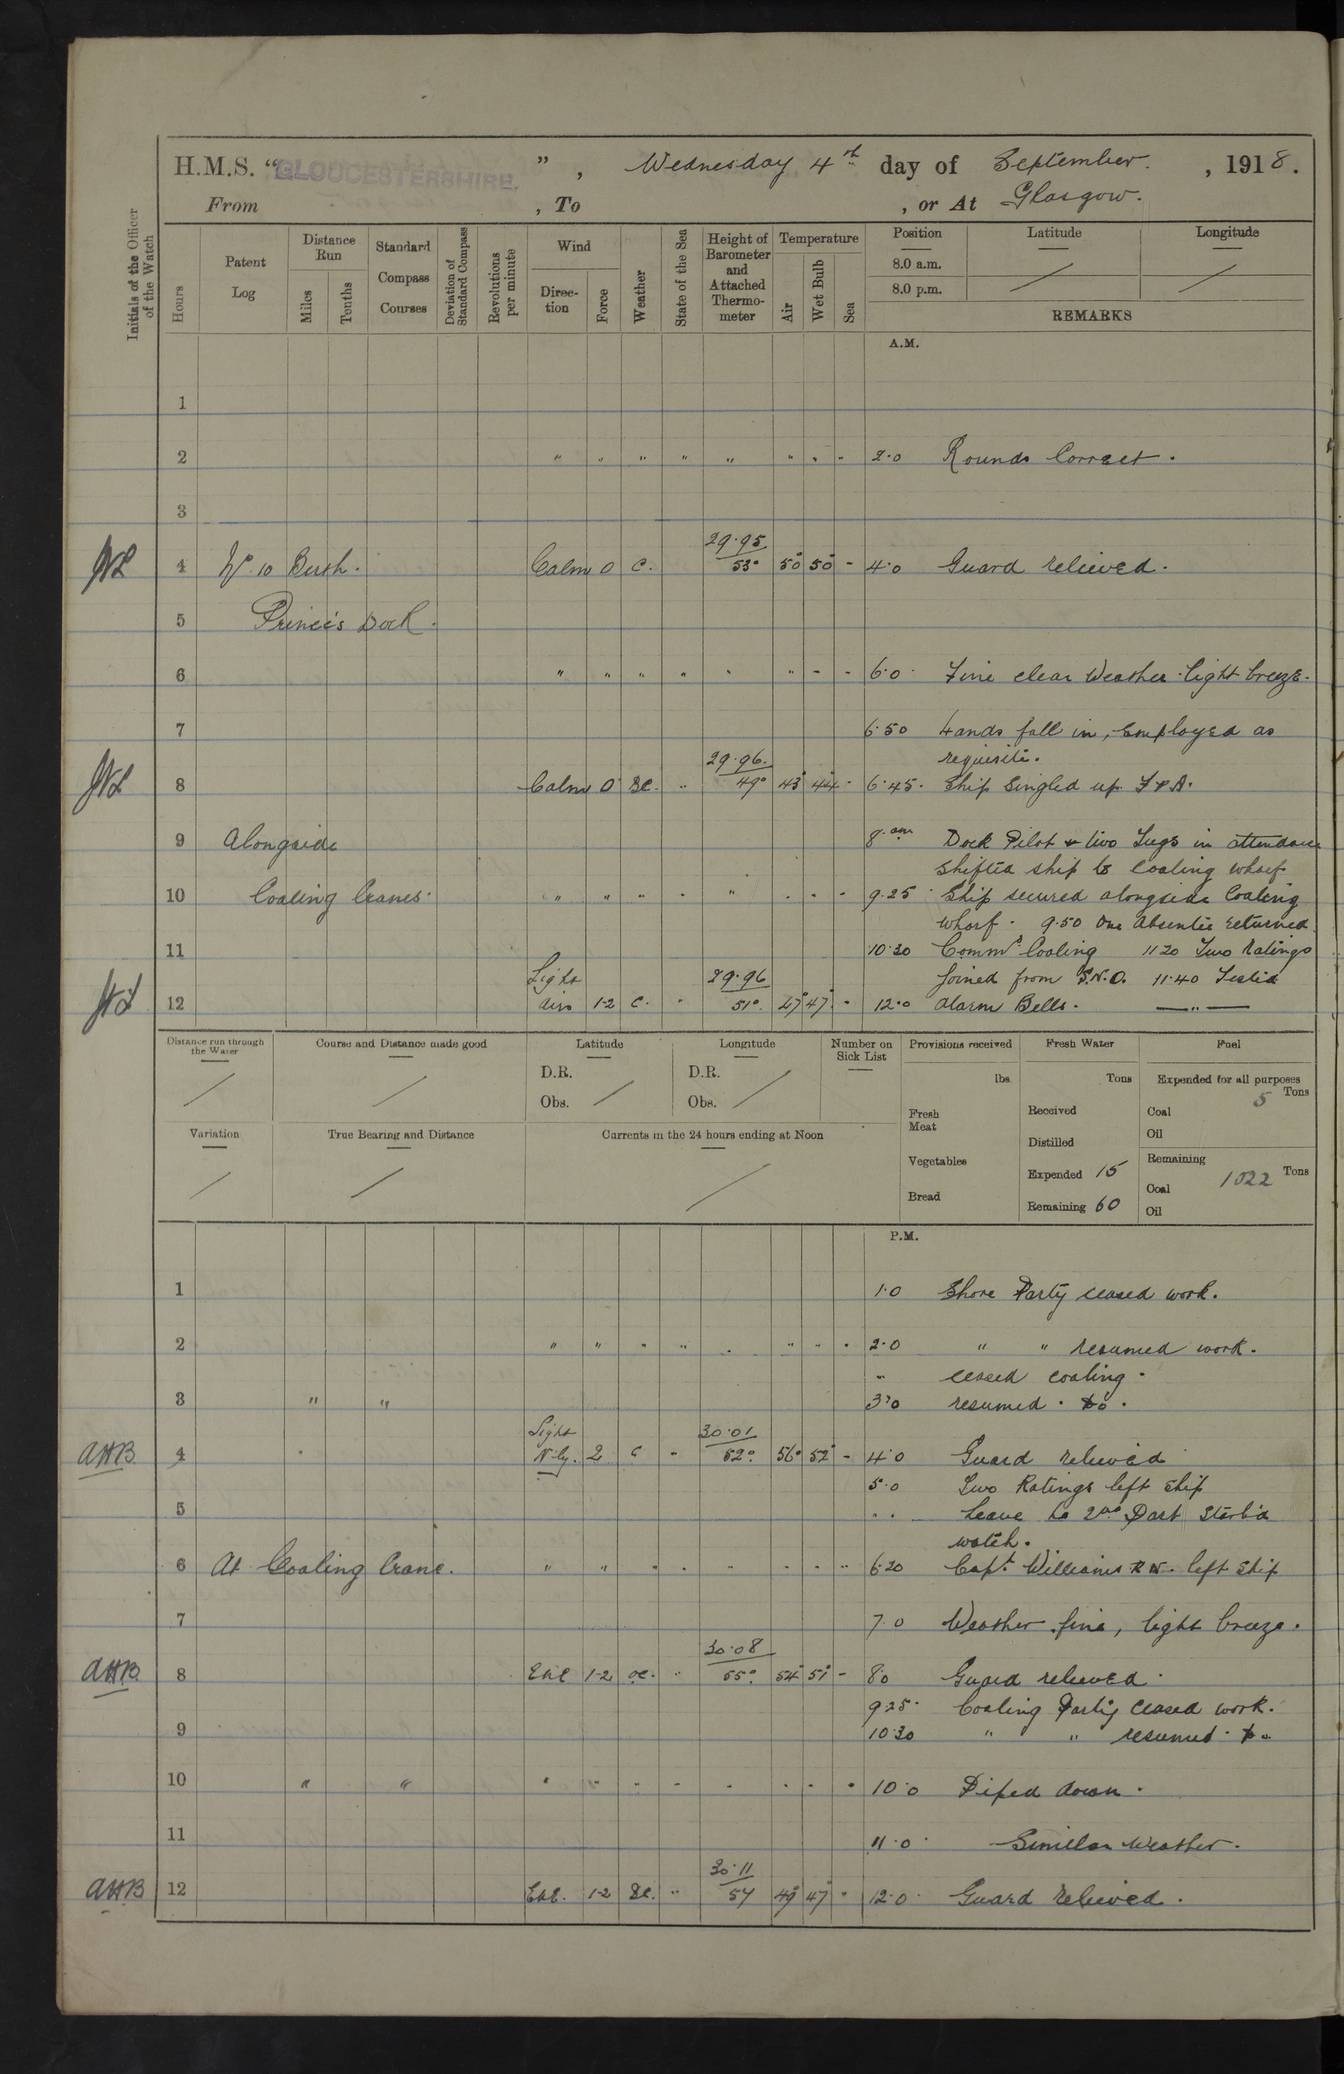 H.M.S. "GLOUCESTERSHIRE.", Wednesday 4th day of September. , 1918.
From , To , or At Glasgow.
Initials of the Officer of the Watch
Hours
Patent Log
Distance Run
Miles
Tenths
Standard Compass Courses
Deviation of Standard Compass
Revolutions per minute
Wind
Direction
Force
Weather
State of the Sea
Height of Barometer and Attached Thermometer
Temperature
Air
Wet Bulb
Sea
Position
8.0 a.m.
8.0 p.m.
Latitude
Longitude
REMARKS
A.M.
1
2 " " " " " " " " 2.0 Rounds Correct.
3
29.95
4 No. 10 Berth. Calm 0 c. 53° 50° 50° - 4.0 Guard relieved.
5 Princes Dock.
6 " " " " " " - - 6.0 Fine clear Weather. light breeze.
7 6.50 Hands fall in, employed as
29.96. requisite.
8 Calm 0 bc. " 49° 43° 44 - 6.45. Ship Singled up F & A.
9 Alongside 8. am Dock Pilot & two Tugs in attendance
shifted ship to Coaling wharf
10 Coaling Cranes. " " " " " 9.25 Ship secured alongside Coaling
wharf. 9.50 One Absentee returned.
11 10.30 Commd. Coaling 11 20 Two Ratings
Light 29.96 Joined from S.N.O. 11.40 Tested
12 airs 1-2 c. " 51°. 47° 47° - 12.0 Alarm Bells. — " —
Distance run through the Water
Course and Distance made good
Latitude
D.R.
Obs.
Longitude
D.R.
Obs.
Number on Sick List
Provisions received
lbs
Fresh Meat
Vegetables
Bread
Fresh Water
Tons
Received
Distilled
Expended 15
Remaining 60
Fuel
Expended for all purposes
Tons
Coal 5
Oil
Remaining
Tons
Coal 1022
Oil
Variation
True Bearing and Distance
Currents in the 24 hours ending at Noon
P.M.
1 1.0 Shore Party ceased work.
2 " " " " " " " 2.0 " " resumed work.
" ceased coaling.
3 " " 3.0 resumed. do.
Light 30.01
AHB 4 N'ly. 2 c - 52°. 56° 52° - 4.0 Guard relieved
5.0 Two Ratings left ship
5 " . Leave to 2nd Part Starb'd
watch.
6 At Coaling Crane. " " " " " " " " 6.20 Capt. Williams R.N. left ship
7 7.0 Weather fine, light breeze.
30.08
AHB 8 ENE 1-2 oc. " 55°. 54° 51° - 8.0 Guard relieved.
9.25. Coaling Party ceased work.
9 10.30 " " resumed. do
10 " " " " " " " " " " 10.0 Piped down.
11 11.0. Similar Weather.
30.11
AHB 12 ENE. 1-2 bc. " 57 49° 47° " 12.0. Guard relieved.